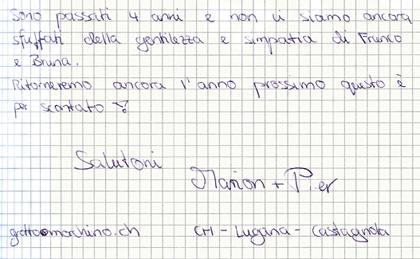 sono passati 4 anni e non ci siamo ancora
stuffati della gentilezza e simpatia di Franco
e Bruna.
Ritorneremo ancora l'anno prossimo questo è
per scontato
Salutoni
Marion + Pier
grottomorchino.ch CH - Lugano - Castagnola